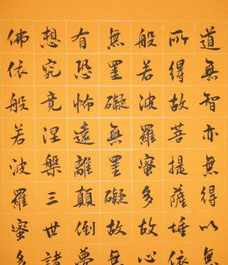 道無智亦無得以無
所得故菩提薩埵依
般若波羅蜜多故心
無罣礙無罣礙故無
有恐怖遠離顛倒夢
想究竟涅槃三世諸
佛依般若波羅蜜多